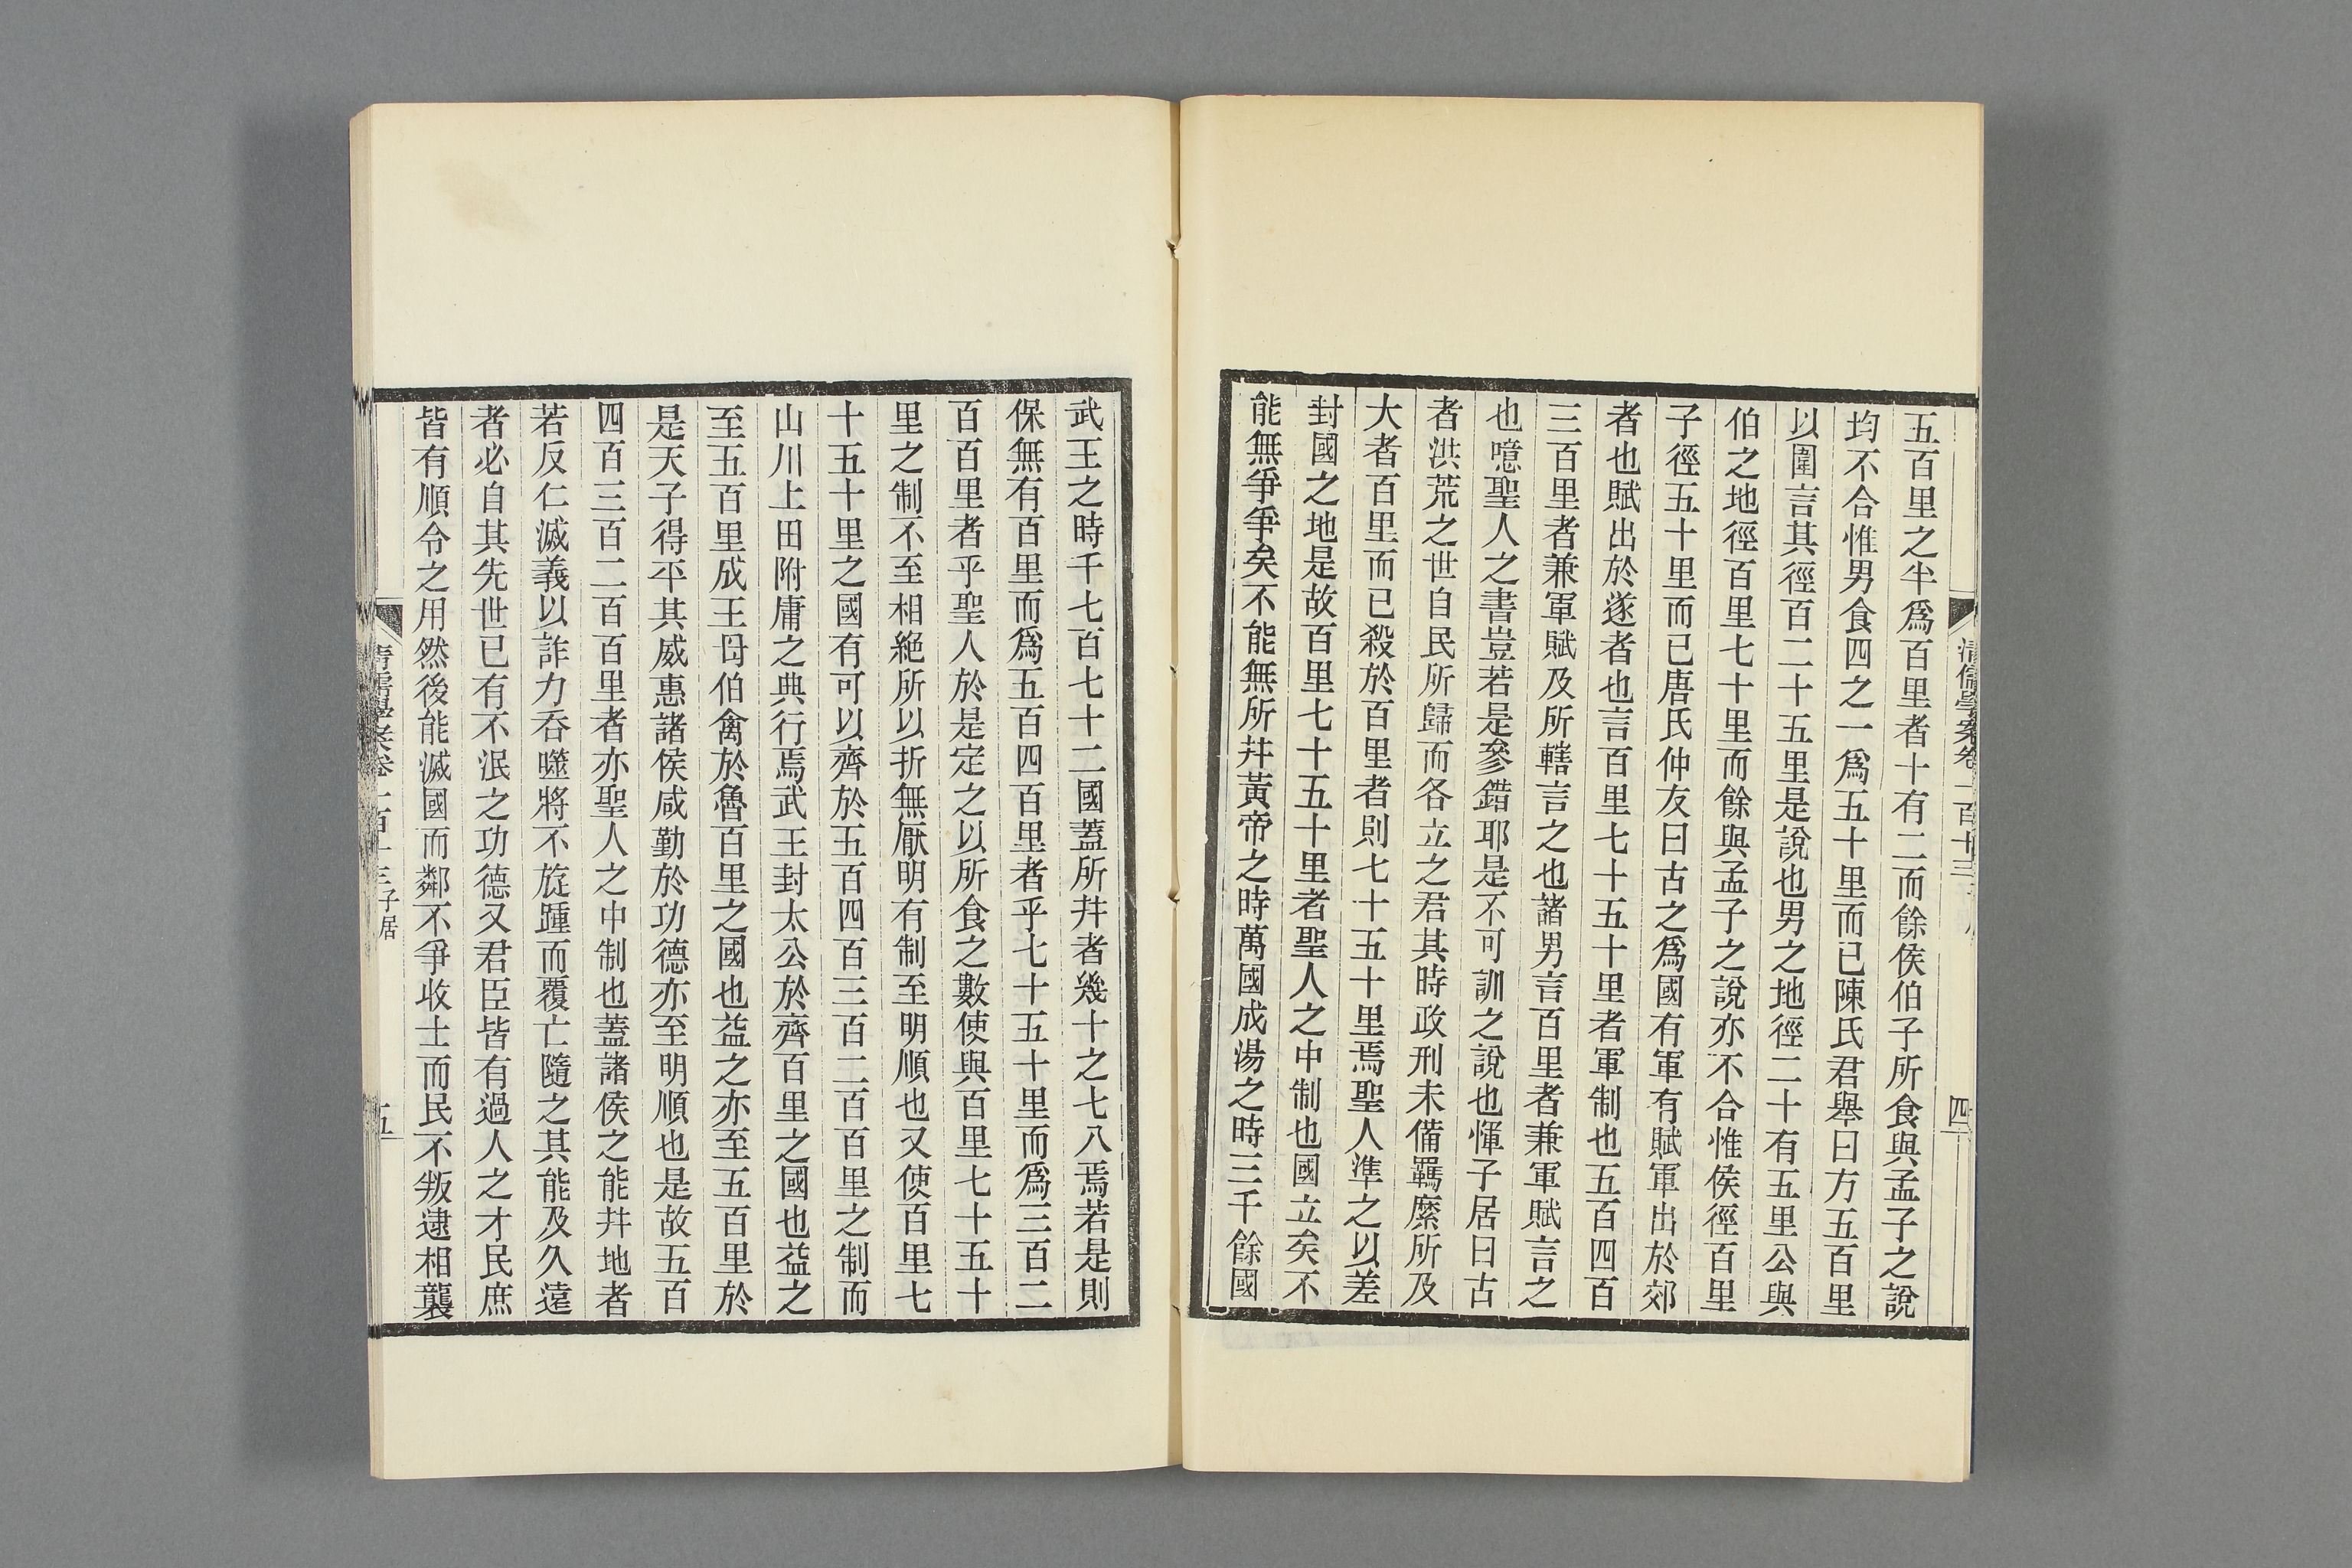 清儒學案卷一百十三
四
五百里之半爲百里者十有二而餘侯伯子所食與孟子之說
均不合惟男食四之一爲五十里而已陳氏君舉曰方五百里
以圍言其徑百二十五里是說也男之地徑二十有五里公與
伯之地徑百里七十里而餘與孟子之說亦不合惟侯徑百里
子徑五十里而已唐氏仲友曰古之爲國有軍有賦軍出於郊
者也賦出於遂者也言百里七十五十里者軍制也五百四百
三百里者兼軍賦及所轄言之也諸男言百里者兼軍賦言之
也噫聖人之書豈若是參錯耶是不可訓之說也惲子居曰古
者洪荒之世自民所歸而各立之君其時政刑未備羈縻所及
大者百里而已殺於百里者則七十五十里焉聖人準之以差
封國之地是故百里七十五十里者聖人之中制也國立矣不
能無爭爭矣不能無所并黃帝之時萬國成湯之時三千餘國
武王之時千七百七十二國蓋所并者幾十之七八焉若是則
保無有百里而爲五百四百里者乎七十五十里而爲三百二
百百里者乎聖人於是定之以所食之數使與百里七十五十
里之制不至相絕所以折無厭明有制至明順也又使百里七
十五十里之國有可以齊於五百四百三百二百百里之制而
山川上田附庸之典行焉武王封太公於齊百里之國也益之
至五百里成王母伯禽於魯百里之國也益之亦至五百里於
是天子得平其威惠諸侯咸勤於功德亦至明順也是故五百
四百三百二百百里者亦聖人之中制也蓋諸侯之能并地者
若反仁滅義以詐力吞噬將不旋踵而覆亡隨之其能及久遠
者必自其先世已有不泯之功德又君臣皆有過人之才民庶
皆有順令之用然後能滅國而鄰不爭收土而民不叛逮相襲
清儒學案卷一百十三 子居
五